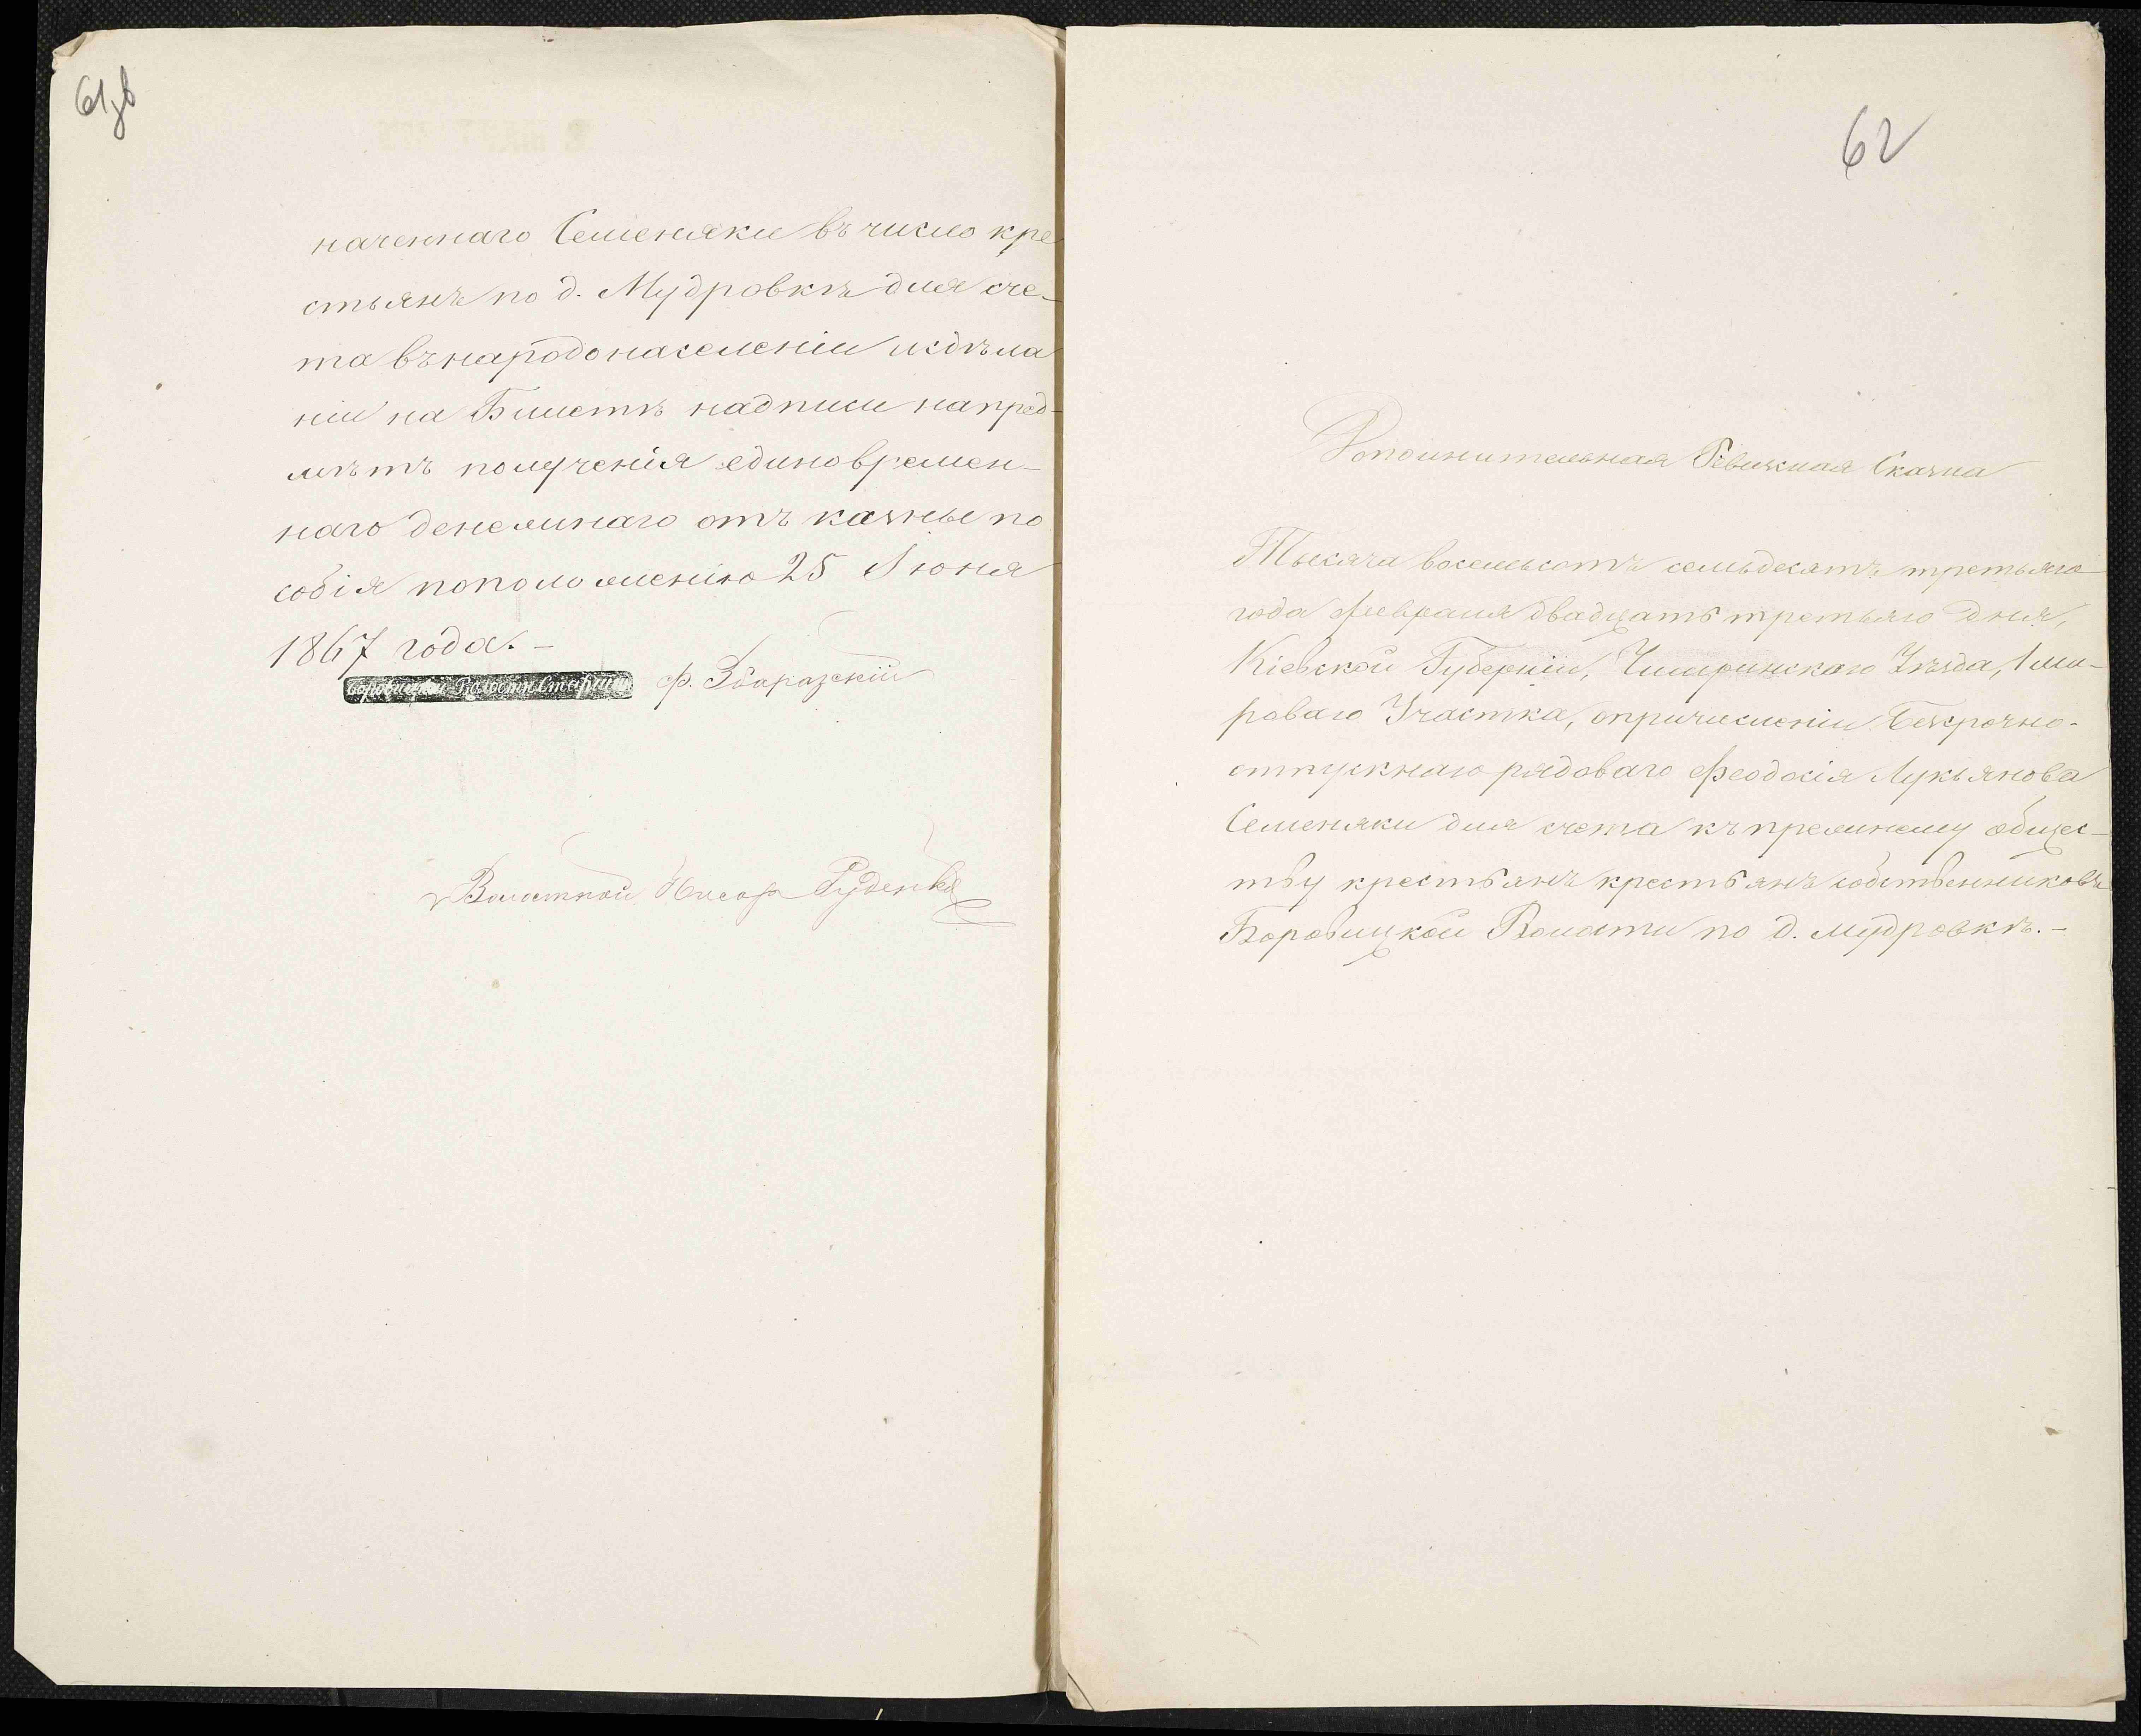 61зв
наченнаго Семеняки въ число кре
стьянъ по д. Мудровкѣ для сче-
та въ народонаселеніи исдѣла
ніи на Билетѣ надписи напред-
мѣтъ полученія единовремен-
наго денежнаго отъ казны по
собія поположенію 25 Іюня
1867 года. -
Боровицкій Волостн. Старшина Ф. Збаразскій
Волостной Писарь Руденко
62
Дополнительная Ревизная Сказка
Тысяча восемьсотъ семьдесятъ третьяго
года февраля двадцать третьяго дня,
Кіевской Губерніи, Чигиринскаго Уѣзда, 1 ми-
роваго Участка, опричисленіи безсрочно-
отпускнаго рядоваго Феодосія Лукьянова
Семеняки для счета къ прежнему общес-
тву крестьянъ крестьянъ собственниковъ
Боровицкой Волости по д. Мудровкѣ. -